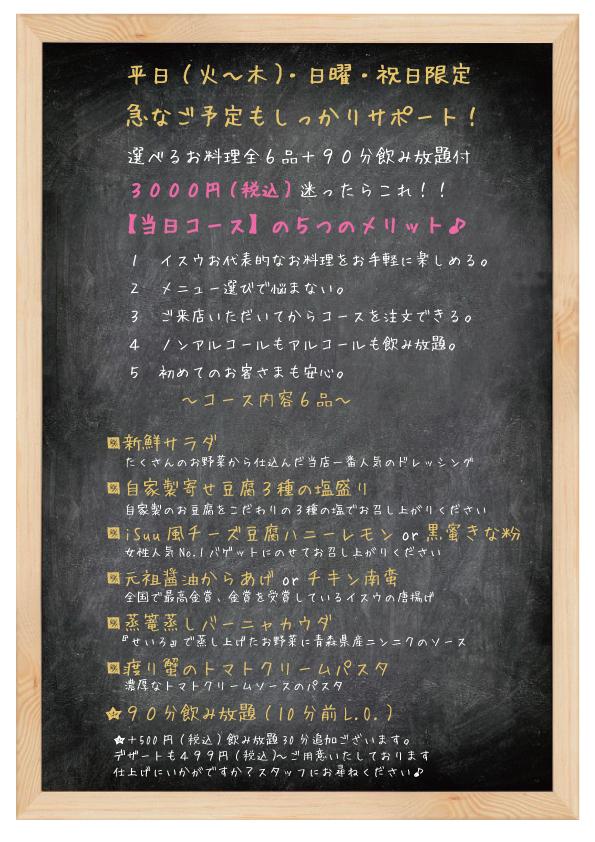 平日(火～木)・日曜・祝日限定
急なご予定もしっかりサポート！
選べるお料理全６品＋９０分飲み放題付
３０００円(税込)迷ったらこれ！！
【当日コース】の５つのメリット♪
1 イスウお代表的なお料理をお手軽に楽しめる。
2 メニュー選びで悩まない。
3 ご来店いただいてからコースを注文できる。
4 ノンアルコールもアルコールも飲み放題。
5 初めてのお客さまも安心。
～コース内容６品～
新鮮サラダ
たくさんのお野菜から仕込んだ当店一番人気のドレッシング
自家製寄せ豆腐３種の塩盛り
自家製のお豆腐をこだわりの３種の塩でお召し上がりください
iSuu風チーズ豆腐ハニーレモン or 黒蜜きな粉
女性人気No.1バゲットにのせてお召し上がりください
元祖醤油からあげ or チキン南蛮
全国で最高金賞、金賞を受賞しているイスウの唐揚げ
蒸篭蒸しバーニャカウダ
『せいろ』で蒸し上げたお野菜に青森県産ニンニクのソース
渡り蟹のトマトクリームパスタ
濃厚なトマトクリームソースのパスタ
９０分飲み放題(10分前L.O.)
＋500円(税込)飲み放題30分追加ございます。
デザートも４９９円(税込)～ご用意いたしております
仕上げにいかがですか？スタッフにお尋ねください♪